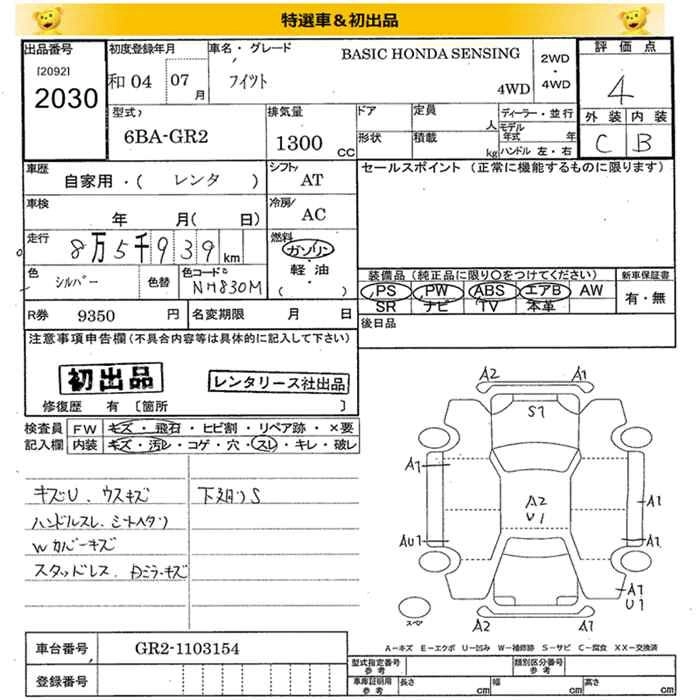 特選車&初出品
出品番号 初度登録年月 車名・グレード BASIC HONDA SENSING 2WD・4WD 評価点
[2092] 和04 07月 フィット 4WD 4
2030
型式 排気量 ドア 定員 人 ディーラー・並行 外装 内装
6BA-GR2 1300 CC 形状 積載 kg モデル年式 年 C B
ハンドル 左・右
車歴 シフト セールスポイント (正常に機能するものに限ります)
自家用・( レンタ ) AT
車検 冷房
年 月( 日) AC
走行 燃料
8万5千939 km ガソリン
軽油
( ・ )
色 シルバー 色替 色コード NH830M
装備品 (純正品に限り○をつけてください) 新車保証書
PS PW ABS エアB AW 有・無
SR ナビ TV 本革
R券 9350 円 名変期限 月 日 後日品
注意事項申告欄(不具合内容等は具体的に記入して下さい)
初出品 レンタリース社出品
修復歴 有 [箇所 ]
検査員記入欄 FW キズ・飛石・ヒビ割・リペア跡・×要
内装 キズ・汚レ・コゲ・穴・スレ・キレ・破レ
キズU、ウスキズ 下廻りS
ハンドルスレ、シートヘタリ
Wカバーキズ
スタッドレス、Rミラーキズ
A2 A1
S1
A1
A2
U1
A1
AU1 A1
A1
U1
スペア
A2 A1
A-キズ E-エクボ U-凹み W-補修跡 S-サビ C-腐食 XX-交換済
車台番号 GR2-1103154
登録番号
型式指定番号 参考 類別区分番号 参考
車庫証明用 参考 長さ cm 幅 cm 高さ cm